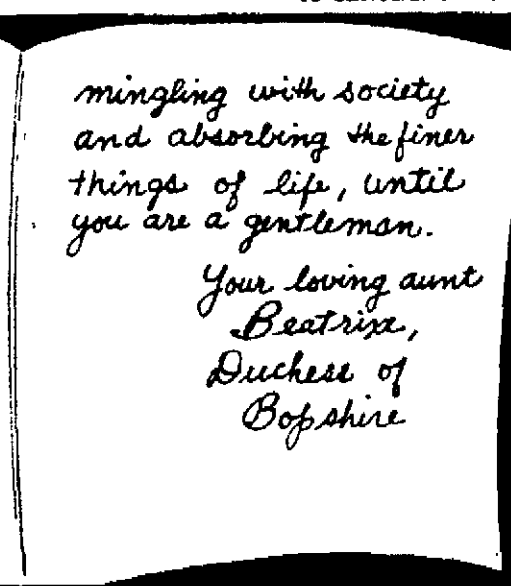 mingling with society
and absorbing the finer
things of life, until
you are a gentleman.
Your loving aunt
Beatrixe,
Duchess of
Bopshire